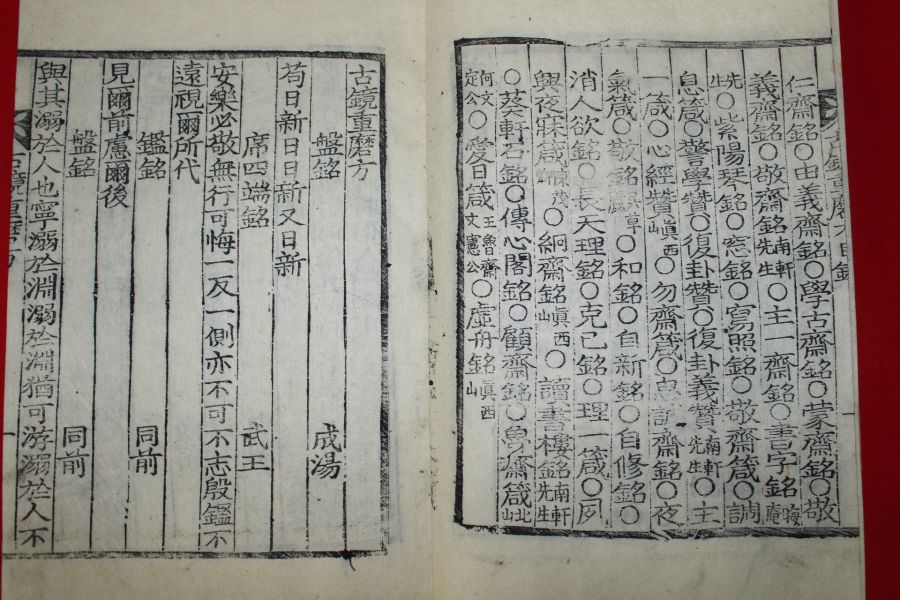 仁齋銘〇由義齋銘〇學古齋銘〇蒙齋銘〇敬
義齋銘〇敬齋銘南軒先生〇主一齋銘〇書字銘晦庵
先生〇紫陽琴銘〇窓銘〇寫照銘〇敬齋箴〇調
息箴〇警學贊〇復卦贊〇復卦義贊南軒先生〇主
一箴〇心經贊西山眞〇勿齋箴〇思誠齋銘〇夜
氣箴〇敬銘吳草廬〇和銘〇自新銘〇自修銘〇
消人欲銘〇長天理銘〇克己銘〇理一箴〇夙
興夜寐箴陳茂卿〇絅齋銘眞西山〇讀書樓銘南軒先生
〇葵軒石銘〇傳心閣銘〇顧齋銘〇魯齋箴北山
何文定公〇愛日箴王魯齋文憲公〇虛舟銘眞西山
古鏡重磨方
盤銘 成湯
苟日新日日新又日新
席四端銘 武王
安樂必敬無行可悔一反一側亦不可不志殷鑑不
遠視爾所代
鑑銘 同前
見爾前慮爾後
盤銘 同前
與其溺於人也寧溺於淵溺於淵猶可游溺於人不